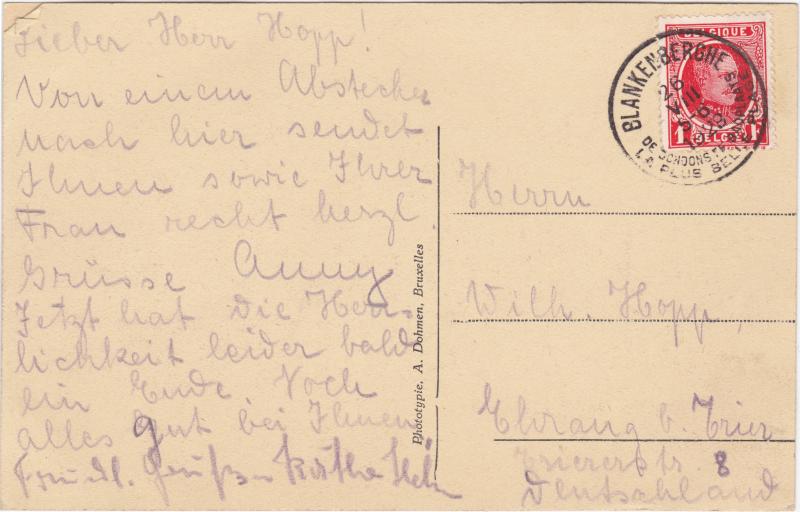 Lieber Herr Hopp!
Von einem Abstecher
nach hier sendet
Ihnen sowie Ihrer
Frau recht herzl.
Grüsse Anny
Jetzt hat die Herr-
lichkeit leider bald
ein Ende. Noch
alles gut bei Ihnen
Freudl. Grüße Käthe
Phototypie, A. Dohmen, Bruxelles
BELGIQUE
1F 1F
BELGIË
BLANKENBERGHE
26
VIII
DE SCHOONSTE
LA PLUS BELLE
Herrn
Wilh. Hopp,
Ehrang b. Trier
Triererstr. 8
Deutschland